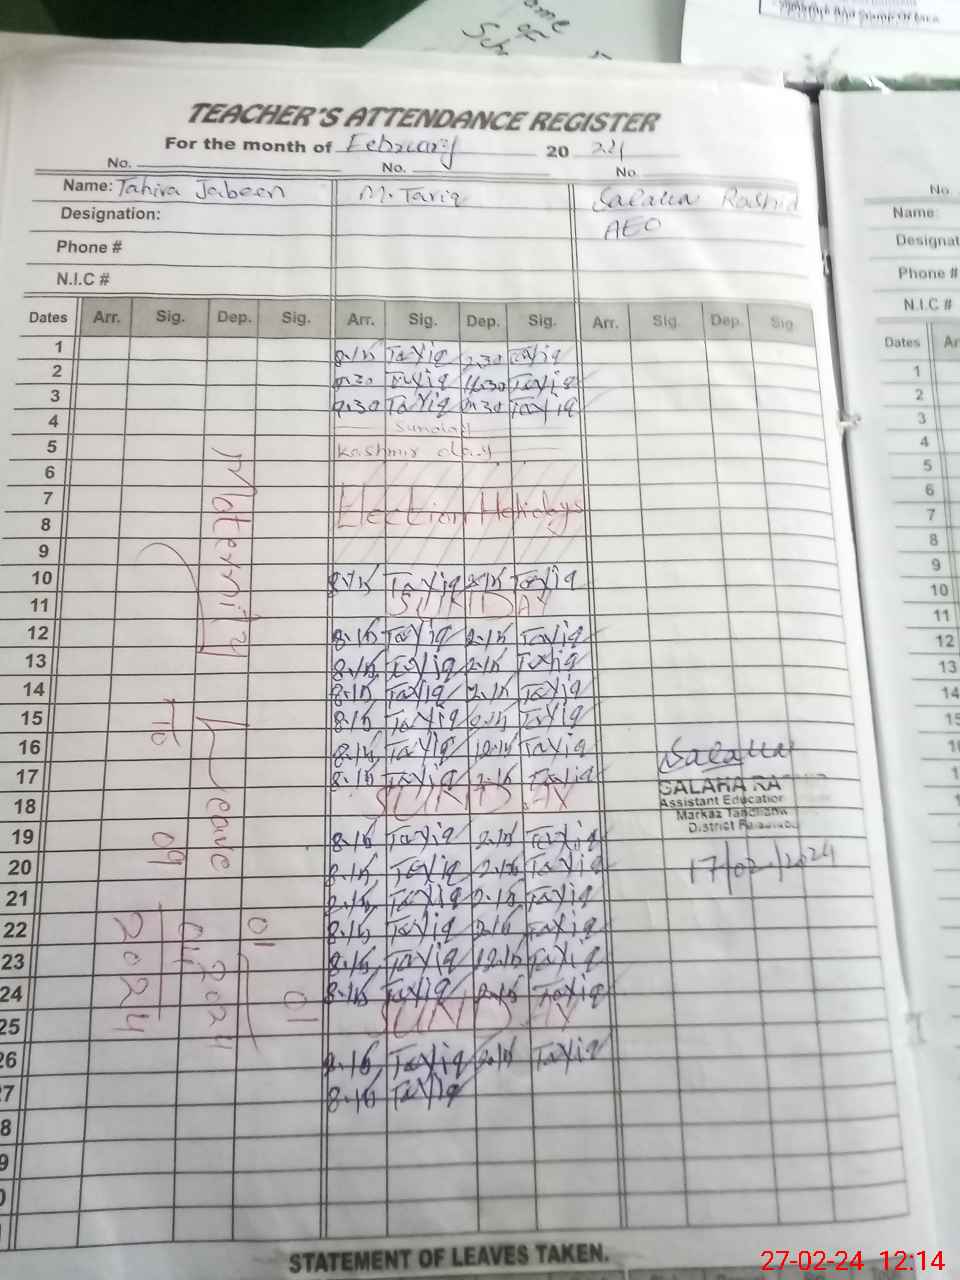 TEACHER'S ATTENDANCE REGISTER
For the month of February 2024
No. No. No.
Name: Tahira Jabeen M. Tariq Salaha Rashid
Designation: AEO
Phone #
N.I.C #
Dates Arr. Sig. Dep. Sig. Arr. Sig. Dep. Sig. Arr. Sig. Dep. Sig
1 8.15 Tariq 2.30 Tariq
2 Tariq Tariq
3 Tariq Tariq
4 Sunday
5 Kashmir day
6
7 Election Holidays
8
9
10 8.15 Tariq 2.15 Tariq
11 SUNDAY
12 8.15 Tariq 2.15 Tariq
13 8.15 Tariq 2.15 Tariq
14 8.15 Tariq 2.15 Tariq
15 8.15 Tariq 2.15 Tariq
16 8.15 Tariq 12.15 Tariq
17 8.15 Tariq 2.15 Tariq
18 SUNDAY
19 8.15 Tariq 2.15 Tariq
20 8.15 Tariq 2.15 Tariq
21 8.15 Tariq 2.15 Tariq
22 8.15 Tariq 2.15 Tariq
23 8.15 Tariq 12.15 Tariq
24 8.15 Tariq 2.15 Tariq
25 SUNDAY
26 8.15 Tariq 2.15 Tariq
27 8.15 Tariq
8
9
Maternity Leave
01
01
2024
To
09
04
2024
Salaha
SALAHA
Assistant Education
Markaz
District
17/02/2024
STATEMENT OF LEAVES TAKEN.
No.
Name:
Designat
Phone #
N.I.C #
Dates Ar
1
2
3
4
5
6
7
8
9
10
11
12
13
14
15
27-02-24 12:14